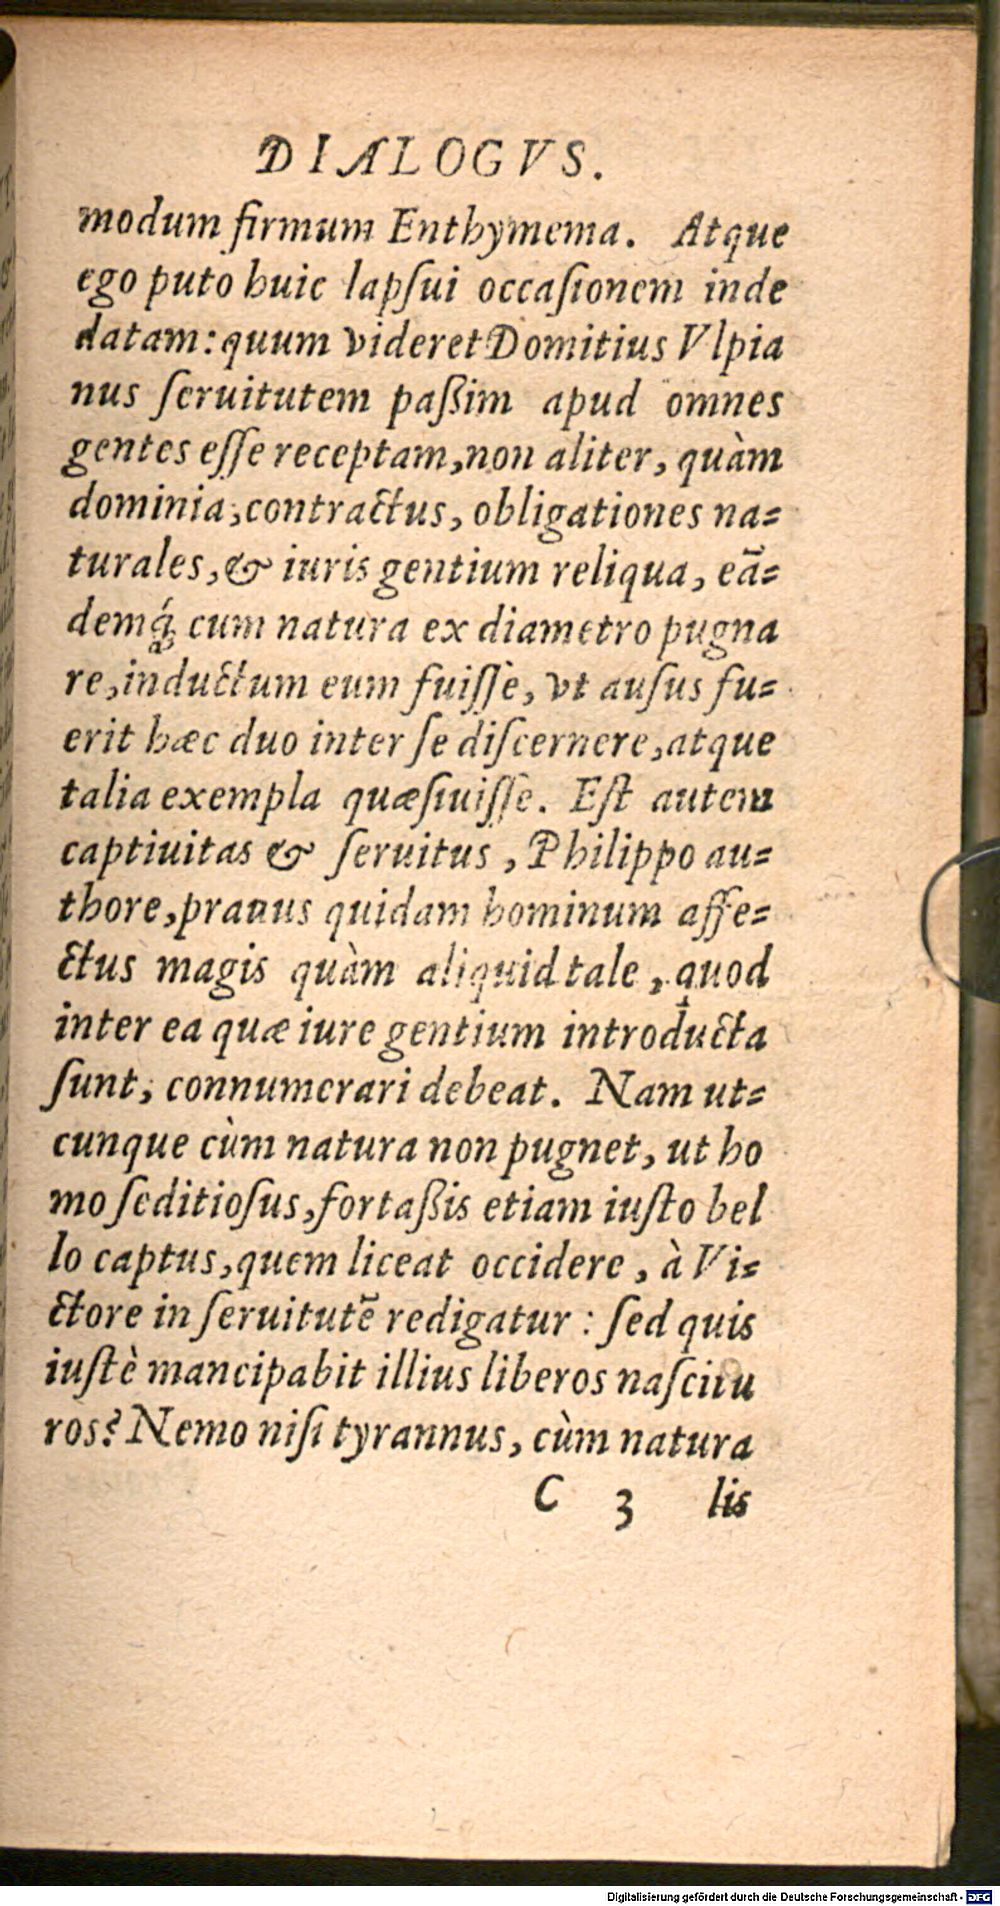 DIALOGVS.
modum firmum Enthymema. Atque
ego puto huic lapſui occaſionem inde
datam: quum videret Domitius Vlpia
nus ſeruitutem paßim apud omnes
gentes eſſe receptam, non aliter, quàm
dominia, contractus, obligationes na-
turales, & iuris gentium reliqua, eā-
demq́; cum natura ex diametro pugna
re, inductum eum fuiſſe, vt auſus fu-
erit hæc duo inter ſe diſcernere, atque
talia exempla quæſiuiſſe. Eſt autem
captiuitas & ſeruitus, Philippo au-
thore, prauus quidam hominum affe-
ctus magis quàm aliquid tale, quod
inter ea quæ iure gentium introducta
ſunt, connumerari debeat. Nam ut-
cunque cùm natura non pugnet, ut ho
mo ſeditioſus, fortaßis etiam iuſto bel
lo captus, quem liceat occidere, à Vi-
ctore in ſeruitutē redigatur: ſed quis
iuſtè mancipabit illius liberos naſcitu
ros? Nemo niſi tyrannus, cùm natura
C 3 lis
Digitalisierung gefördert durch die Deutsche Forschungsgemeinschaft - DFG